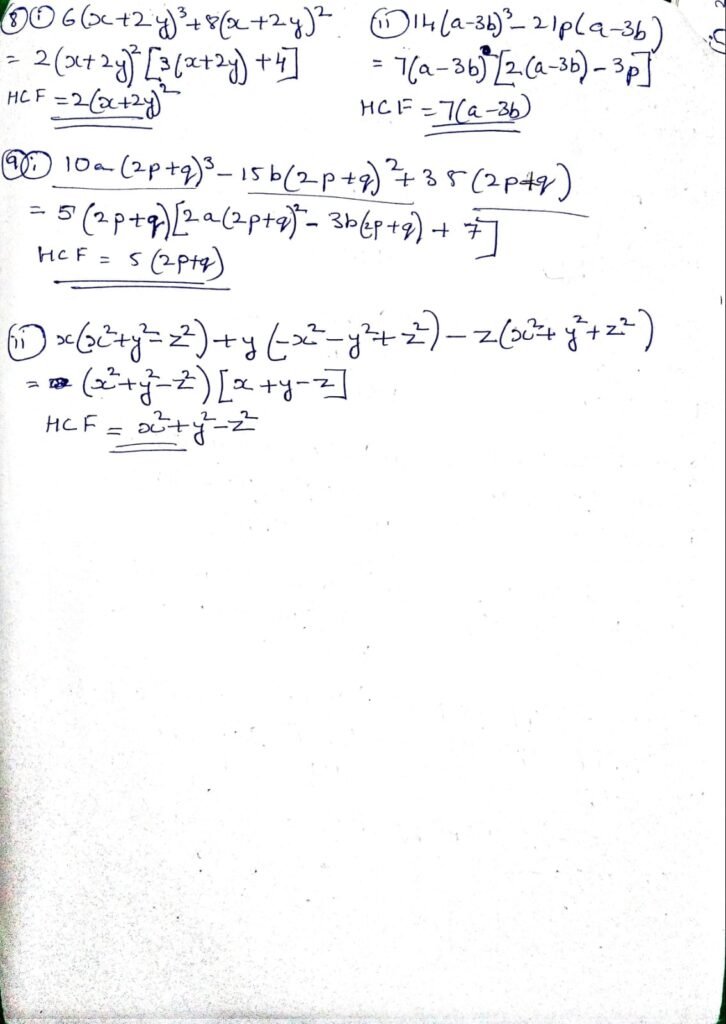 ⑧ ⓘ 6(x+2y)³+8(x+2y)²
= 2(x+2y)² [3(x+2y) +4]
HCF = 2(x+2y)²
ⓘⓘ 14(a-3b)³ - 21p(a-3b)
= 7(a-3b) [2(a-3b) - 3p]
HCF = 7(a-3b)
⑨ ⓘ 10a (2p+q)³ - 15b(2p+q)² + 35 (2p+q)
= 5 (2p+q) [2a(2p+q)² - 3b(2p+q) + 7]
HCF = 5 (2p+q)
ⓘⓘ x(x²+y²-z²)+y (-x²-y²+z²) - z(x²+y²+z²)
= (x²+y²-z²) [x +y-z]
HCF = x²+y²-z²